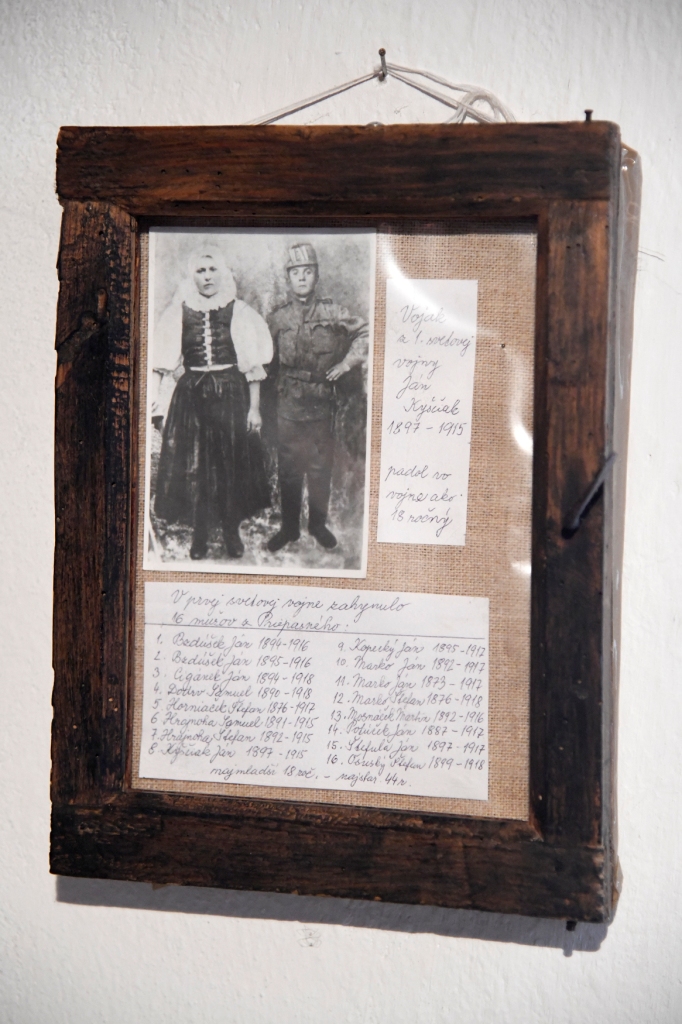 Vojak
z 1. svetovej
vojny
Ján
Kyščiak
1897 - 1915
padol vo
vojne ako
18 ročný
V prvej svetovej vojne zahynulo
16 mužov z Priepasného:
1. Bzdúšek Ján 1894-1916
2. Bzdúšek Ján 1895-1916
3. Cigánek Ján 1894-1918
4. Samuel 1890-1918
5. Horniaček Štefan 1876-1917
6 Hrajnoha Samuel 1891-1915
7. Hrajnoha Štefan 1892-1915
8. Kyščiak Ján 1897-1915
9. Kopecký Ján 1895-1917
10. Masko Ján 1892-1917
11. Marko Ján 1873-1917
12. Marko Štefan 1876-1918
13. Martin 1892-1916
14. Ján 1887-1917
15. Štefula Ján 1897-1917
16. Osuský Štefan 1899-1918
najmladší 18 roč. - najstar. 44 r.